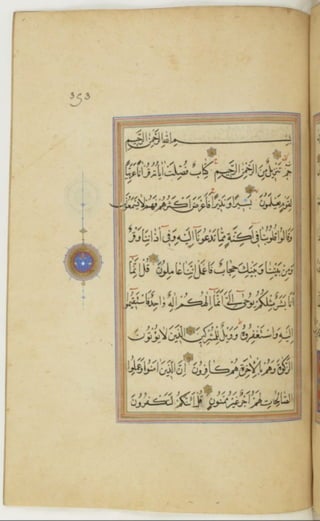 353
بسم الله الرحمن الرحيم
حم تنزيل من الرحمن الرحيم كتاب فصلت اياته قرانا عربيا
لقوم يعلمون بشيرا ونذيرا فاعرض اكثرهم فهم لا يسمعون
وقالوا قلوبنا في اكنة مما تدعونا اليه وفي اذاننا وقر
ومن بيننا وبينك حجاب فاعمل اننا عاملون قل انما
انا بشر مثلكم يوحى الي انما الهكم اله واحد فاستقيموا
اليه واستغفروه وويل للمشركين الذين لا يؤتون
الزكوة وهم بالاخرة هم كافرون ان الذين امنوا وعملوا
الصالحات لهم اجر غير ممنون قل ائنكم لتكفرون